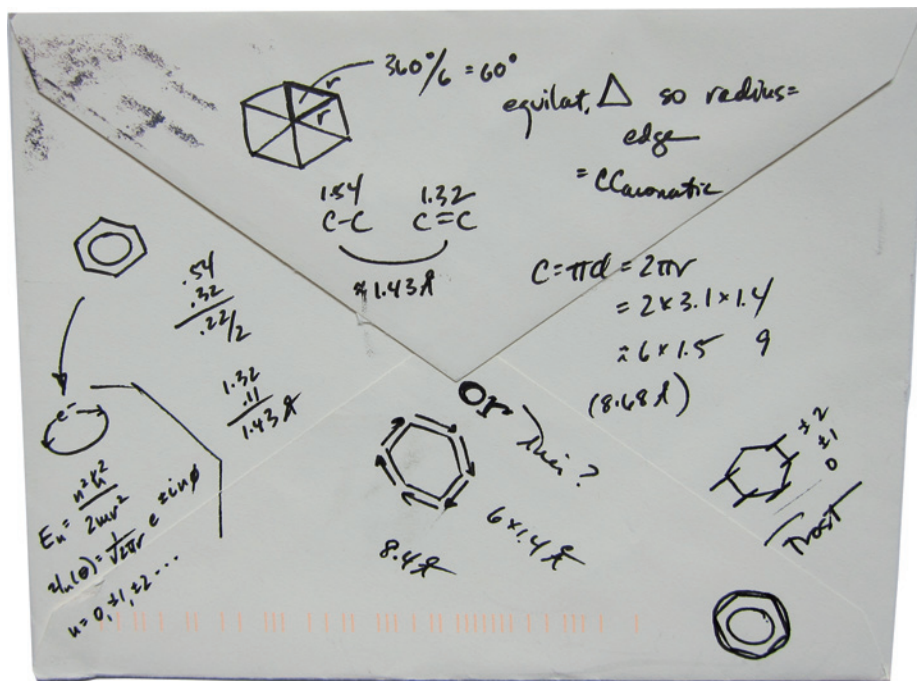 360°/6 = 60°
r
r
equilat. △ so radius =
edge
= CCaromatic
1.54 1.32
C-C C=C
≈ 1.43 Å
C = πd = 2πr
= 2 × 3.1 × 1.4
≈ 6 × 1.5 9
(8.68 Å)
.54
.32
.22/2
1.32
.11
1.43 Å
e-
Eₙ = n²ħ²/2mr²
ψₙ(θ) = 1/√2πr e^±inφ
n = 0, ±1, ±2 ...
Or
This?
6 × 1.4 Å
8.4 Å
±2
±1
0
Frost